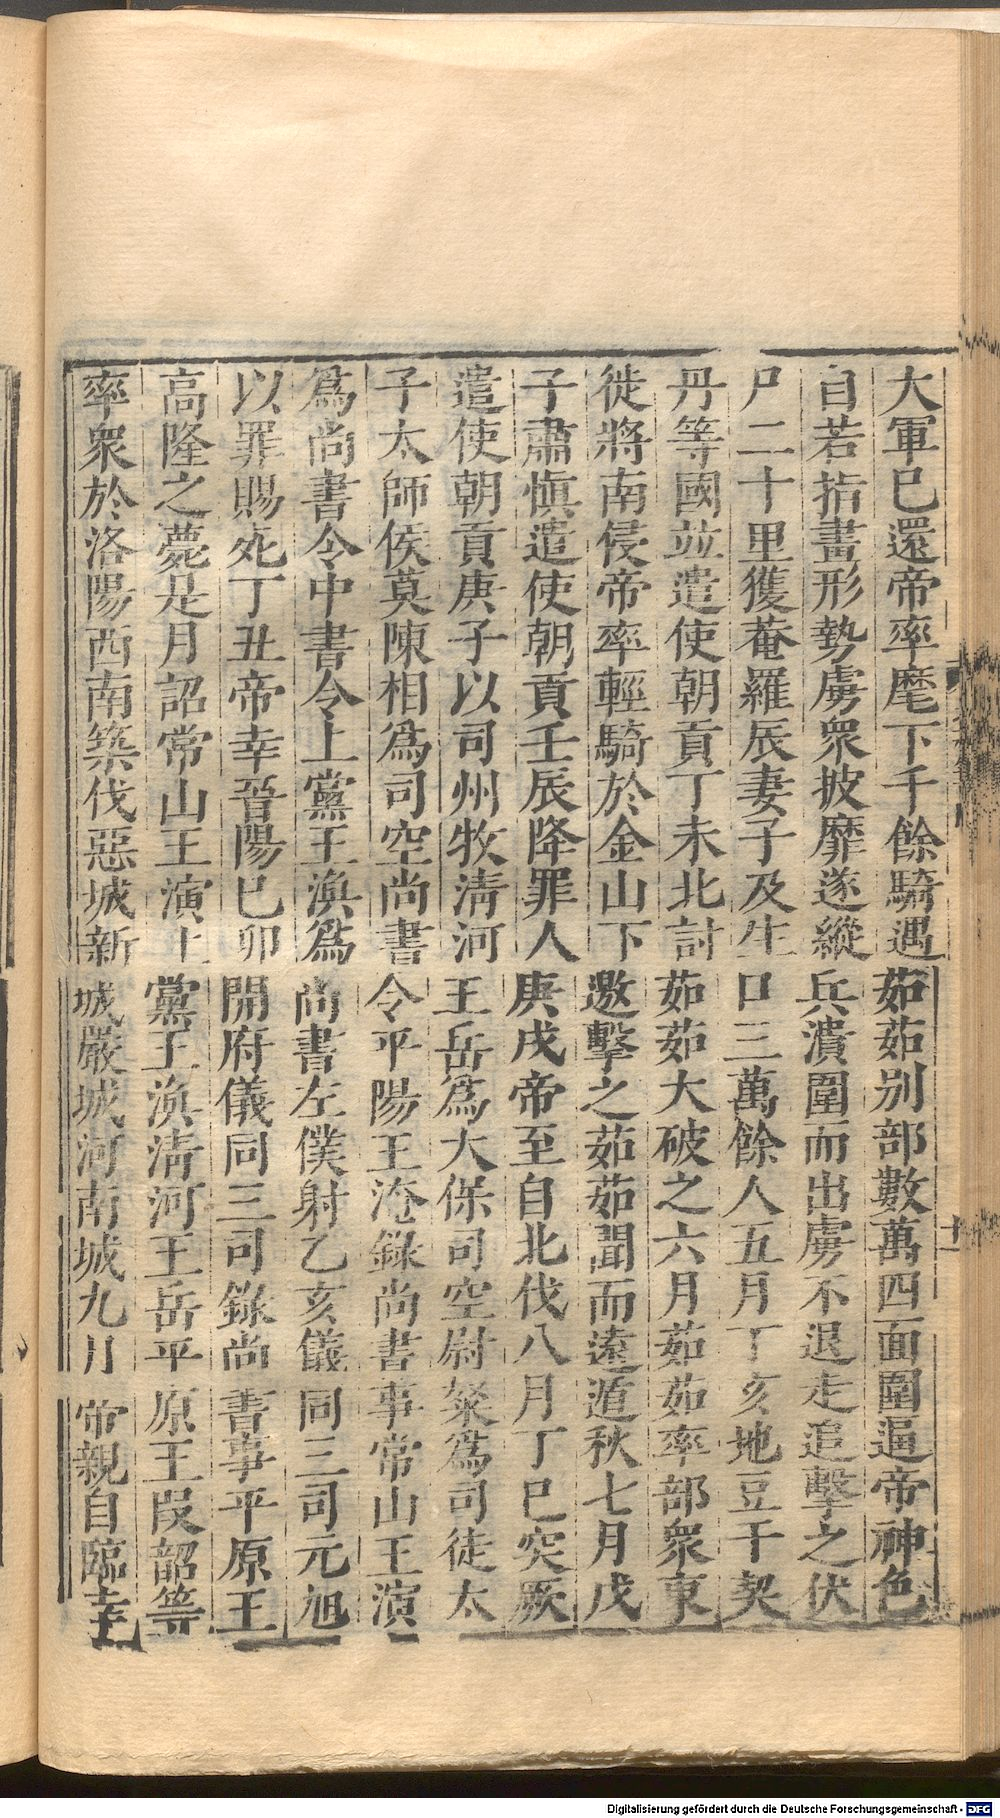 大軍巳還帝率麾下千餘騎遇茹茹別部數萬四面圍逼帝神色
自若指畫形勢虜衆披靡遂縱兵潰圍而出虜不退走追擊之伏
尸二十里獲菴羅辰妻子及生口三萬餘人五月丁亥地豆干契
丹等國竝遣使朝貢丁未北討茹茹大破之六月茹茹率部衆東
徙將南侵帝率輕騎於金山下邀擊之茹茹聞而遠遁秋七月戊
子肅愼遣使朝貢壬辰降罪人庚戌帝至自北伐八月丁巳突厥
遣使朝貢庚子以司州牧淸河王岳爲太保司空尉粲爲司徒太
子太師侯莫陳相爲司空尚書令平陽王淹錄尚書事常山王演
爲尚書令中書令上黨王渙爲尚書左僕射乙亥儀同三司元旭
以罪賜死丁丑帝幸晉陽巳卯開府儀同三司錄尚書事平原王
高隆之薨是月詔常山王演上黨王渙淸河王岳平原王段韶等
率衆於洛陽西南築伐惡城新城嚴城河南城九月帝親自臨幸
十一
Digitalisierung gefördert durch die Deutsche Forschungsgemeinschaft - DFG